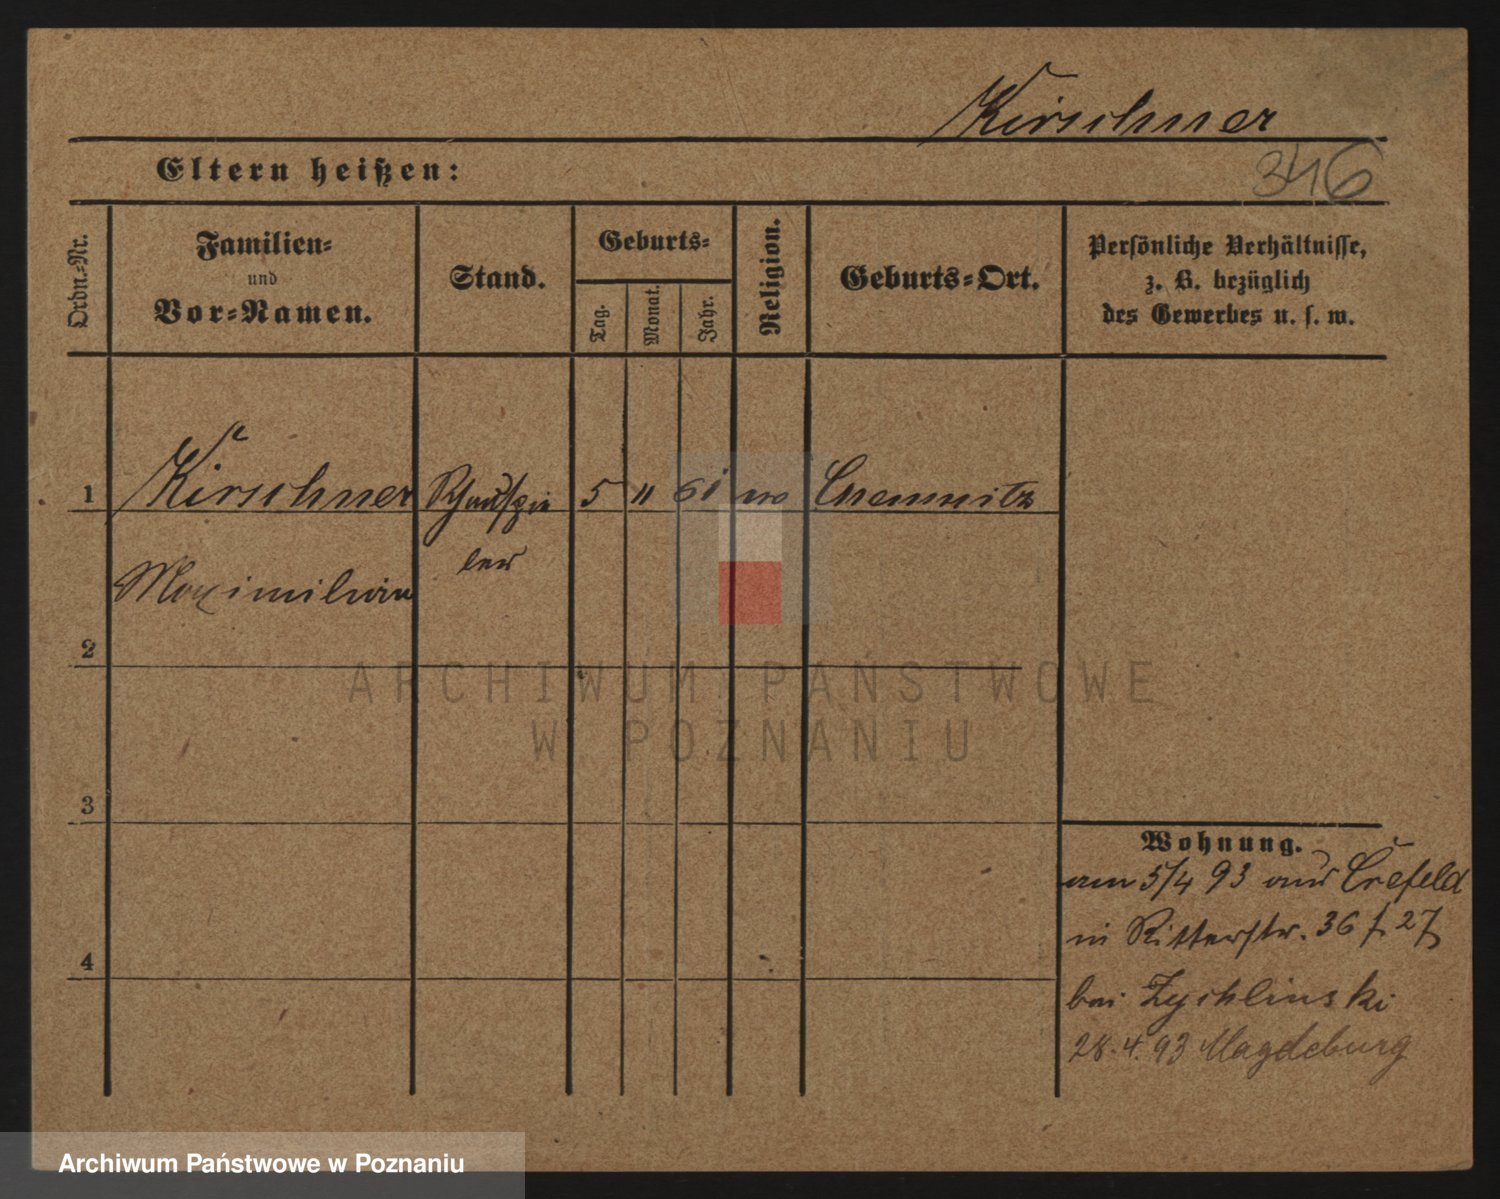 Kirschner
Eltern heißen:
346
Ordn.-Nr.
Familien-
und
Vor-Namen.
Stand.
Geburts-
Tag.
Monat.
Jahr.
Religion.
Geburts-Ort.
Persönliche Verhältnisse,
z. B. bezüglich
des Gewerbes u. s. w.
1 Kirschner Schauspie 5 11 61 Chemnitz
ler
Maximilian
2
ARCHIWUM PAŃSTWOWE
W POZNANIU
3
Wohnung.
am 5/4 93 aus Crefeld
in Ritterstr. 36 f. 27
bei Zychlinski
4
28.4.93 Magdeburg
Archiwum Państwowe w Poznaniu